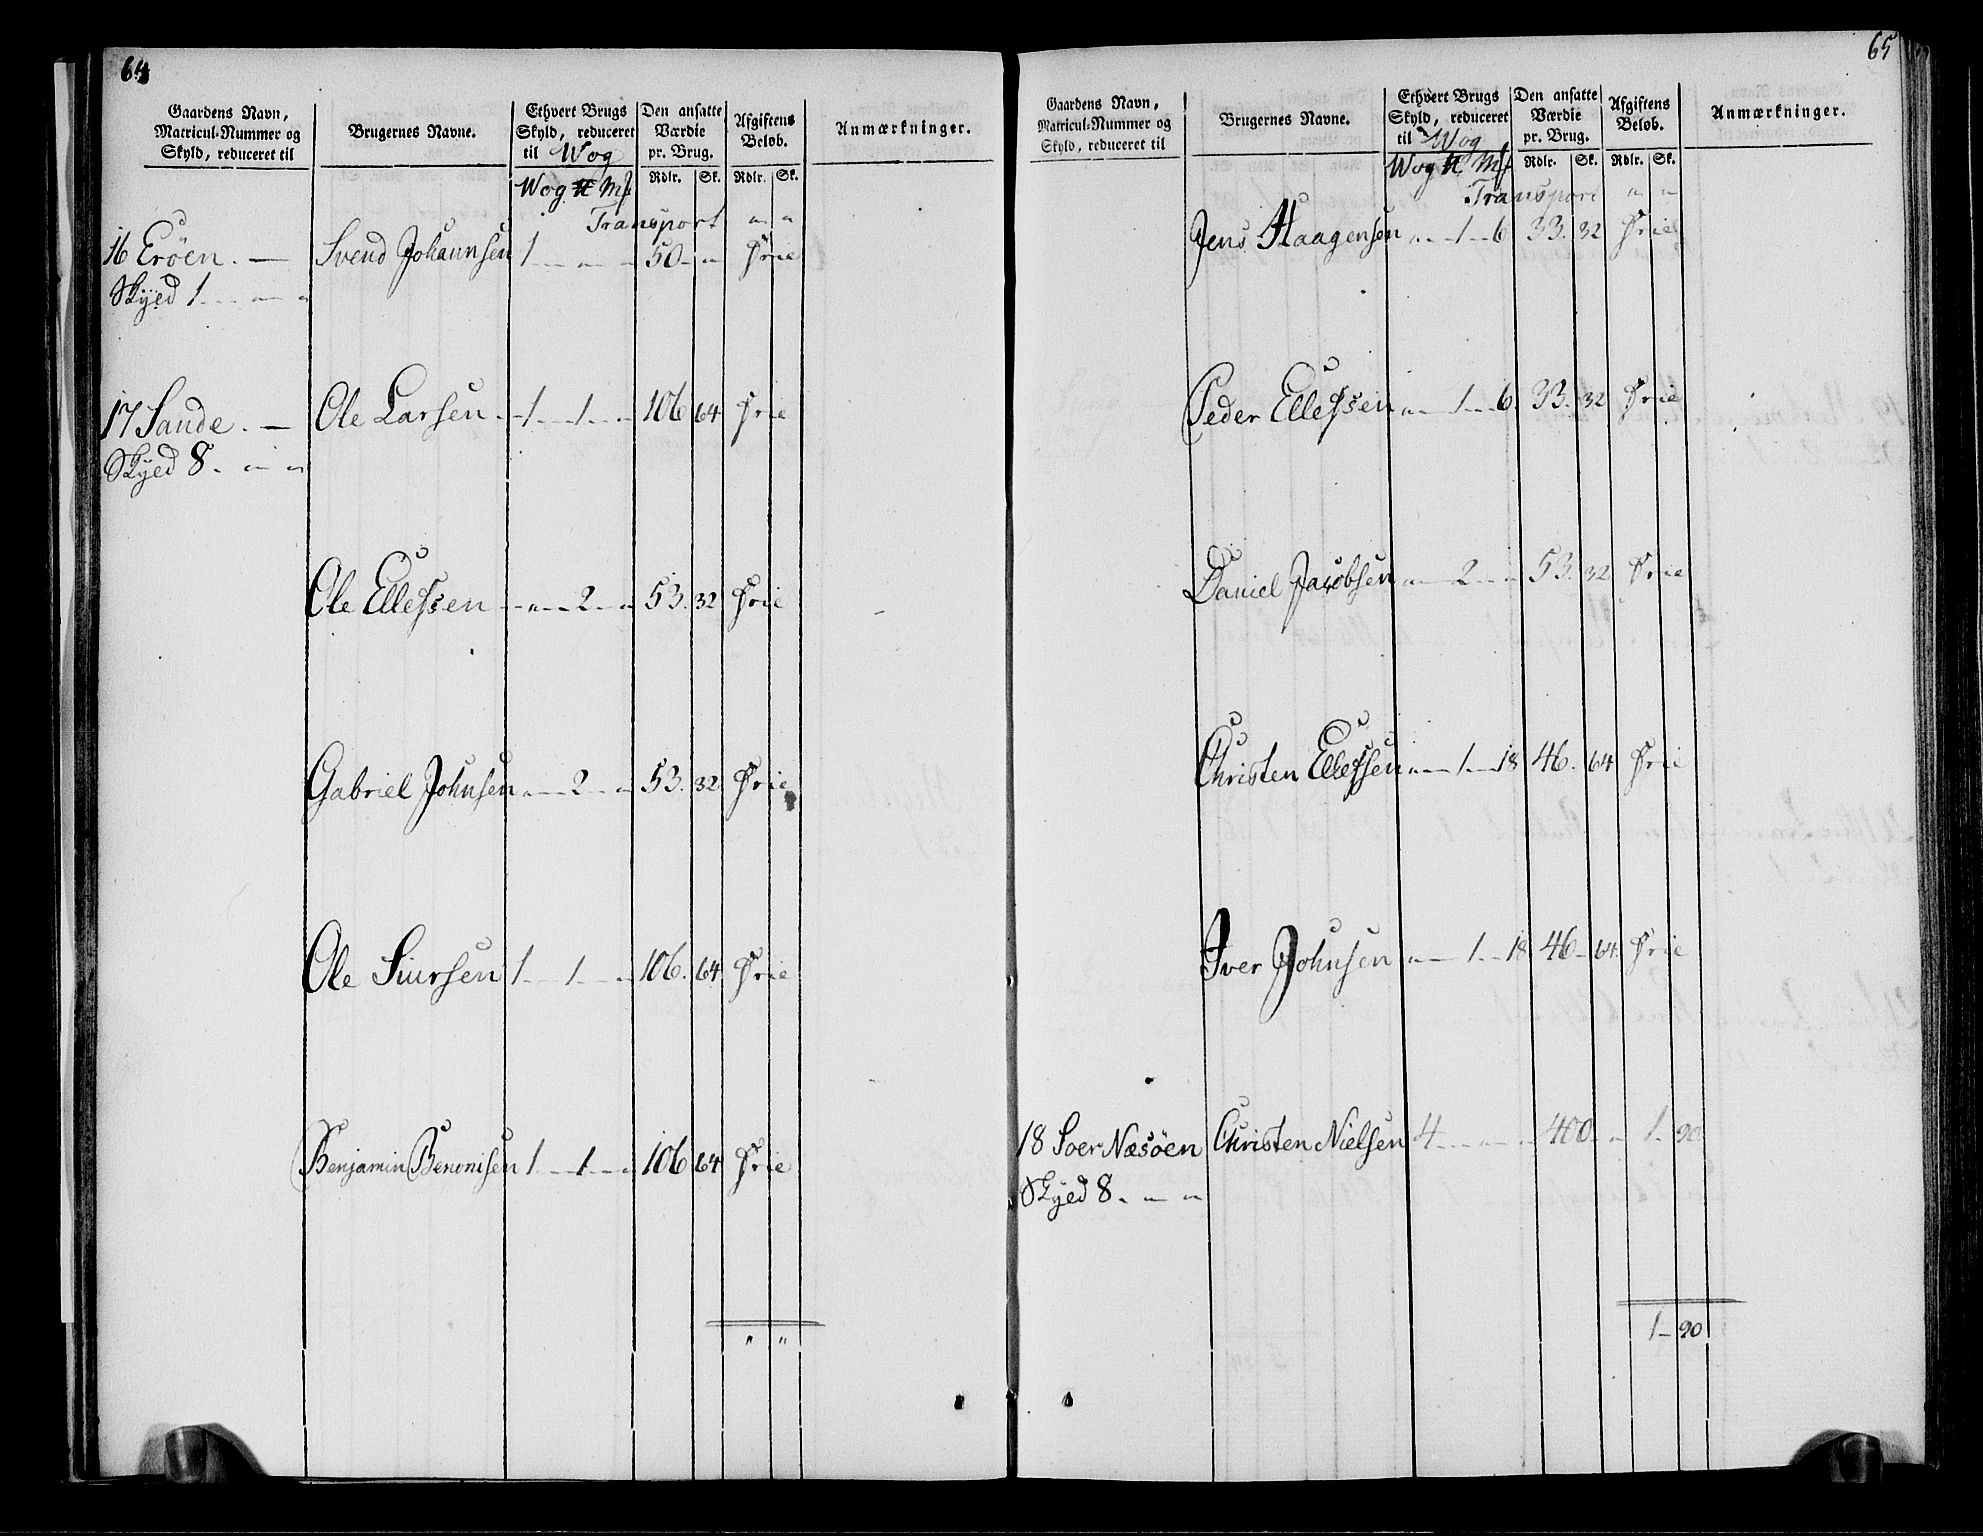 64
Gaardens Navn, Matricul-Nummer og Skyld, reduceret til
Brugernes Navne.
Ethvert Brugs Skyld, reduceret til Wog
Den ansatte Værdie pr. Brug.
Afgiftens Beløb.
Anmærkninger.
Wog ℔ Mk Rdlr. Sk. Rdlr. Sk.
Transport " "
16 Eröen. — Svend Johannsen 1 - " - " 50 - " frie
Skyed 1 - " - "
17 Sande. — Ole Larsen. - 1 - 1 - " 106 64 frie
Skyed 8 - " - "
Ole Ellefsen - " - 2 - " 53. 32 frie
Gabriel Johnsen " - 2 - " 53. 32 frie
Ole Siursen 1 - 1 - " 106. 64 frie
Benjamin Benonisen 1 - 1 - " 106 64 frie
" "
65
Gaardens Navn, Matricul-Nummer og Skyld, reduceret til
Brugernes Navne.
Ethvert Brugs Skyld, reduceret til Wog
Den ansatte Værdie pr. Brug.
Afgiftens Beløb.
Anmærkninger.
Wog ℔ Mk Rdlr. Sk. Rdlr. Sk.
Transport " "
Jens Haagensen " - 1 - 6 33. 32 frie
Peder Ellefsen " - 1 - 6. 33. 32 frie
Daniel Jacobsen " - 2 - " 53. 32 frie
Christen Ellefsen " - 1 - 18 46. 64 frie
Iver Johnsen " - 1 - 18 46 - 64. frie
18 Soer Næsöen Christen Nielsen 4 - " - " 400 - " 1 - 90
Skyed 8 - " - "
1 - 90